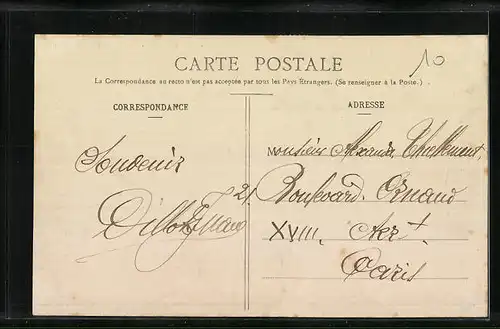 10
CARTE POSTALE
La Correspondance au recto n'est pas acceptée par tous les Pays Étrangers. (Se renseigner à la Poste.)
CORRESPONDANCE
ADRESSE
Souvenir
Monsieur Alexandre
21 Boulevard Ornano
XVIII. Arr t
Paris